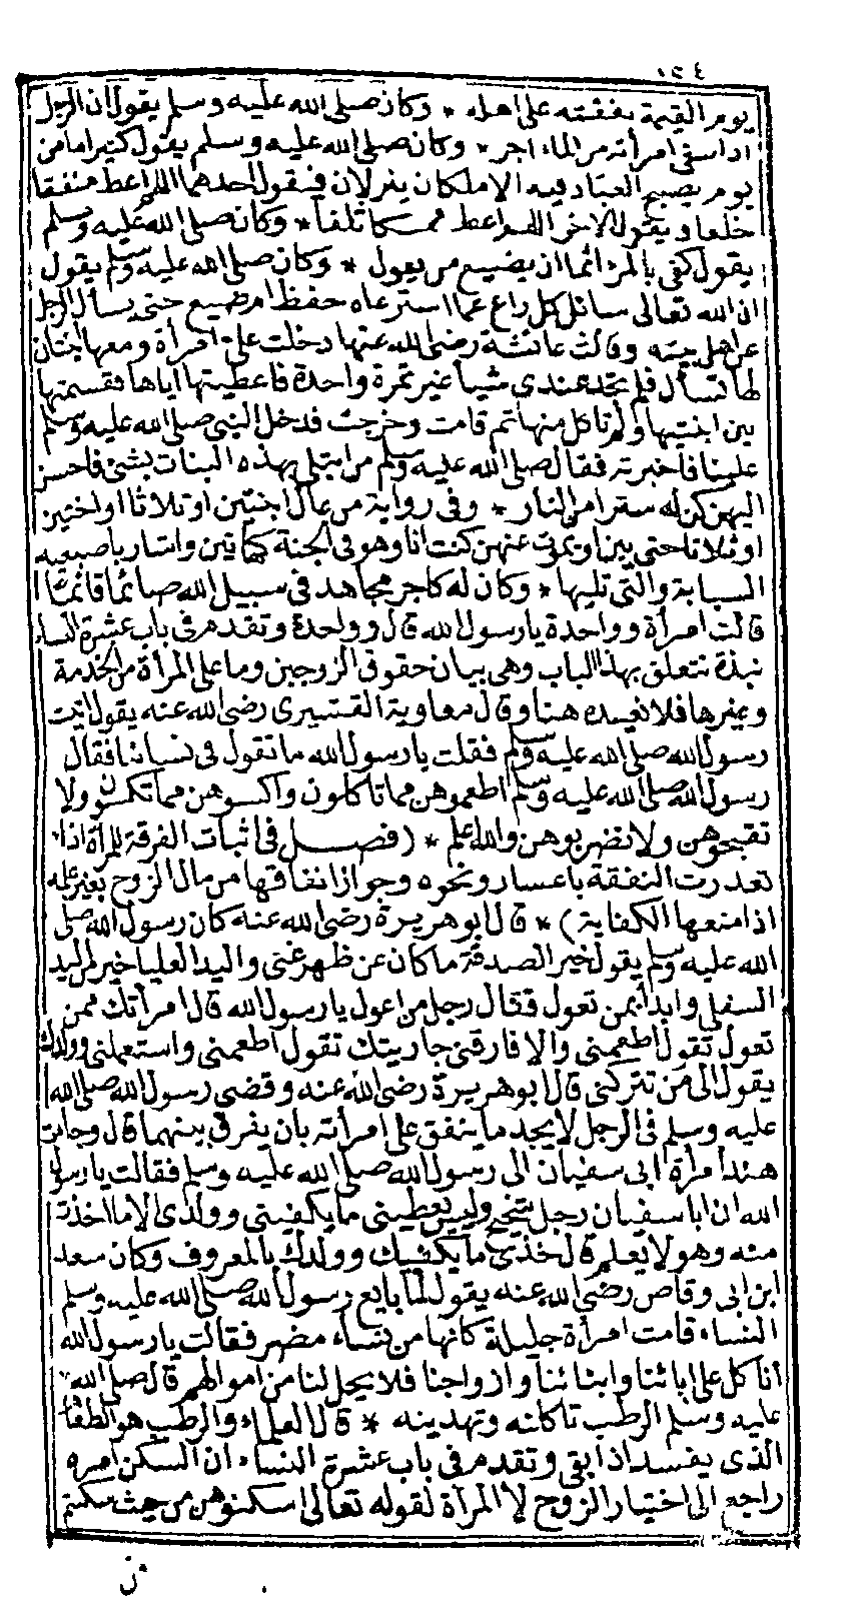 ١٢٤
يوم القيمة نفقته على اهله * وكان صلى الله عليه وسلم يقول ان الرجل
اذا سقى امرأته من الماء اجر * وكان صلى الله عليه وسلم يقول كثيرا ما من
يوم يصبح العباد فيه الا ملكان ينزلان فيقول احدهما اللهم اعط منفقا
خلفا ويقول الاخر اللهم اعط ممسكا تلفا * وكان صلى الله عليه وسلم
يقول كفى بالمرء اثما ان يضيع من يعول * وكان صلى الله عليه وسلم يقول
ان الله تعالى سائل كل راع عما استرعاه حفظ ام ضيع حتى يسأل الرجل
عن اهل بيته وقالت عائشة رضى الله عنها دخلت على امرأة ومعها ابنتان
لها تسأل فلم تجد عندى شيأ غير تمرة واحدة فاعطيتها اياها فقسمتها
بين ابنتيها ولم تاكل منها ثم قامت وخرجت فدخل النبي صلى الله عليه وسلم
علينا فاخبرته فقال صلى الله عليه وسلم من ابتلى بهذه البنات بشئ فاحسن
اليهن كن له سترا من النار * وفى رواية من عال ابنتين او ثلاثا او اختين
او ثلاثا حتى يبن او يموت عنهن كنت انا وهو فى الجنة كهاتين واشار باصبعيه
السبابة والتى تليها * وكان له كاجر مجاهد فى سبيل الله صائما قائما
قالت امرأة وواحدة يا رسول الله قال وواحدة وتقدم فى باب عشرة النساء
نبذة تتعلق بهذا الباب وهى بيان حقوق الزوجين وما على المرأة من الخدمة
وغيرها فلا نعيده هنا وقال معاوية القشيرى رضى الله عنه يقول اتيت
رسول الله صلى الله عليه وسلم فقلت يا رسول الله ما تقول فى نسائنا فقال
رسول الله صلى الله عليه وسلم اطعموهن مما تاكلون واكسوهن مما تكسون ولا
تقبحوهن ولا تضربوهن والله اعلم * (فصل فى اثبات الفرقة للمرأة اذا
تعذرت النفقة باعسار ونحوه وجواز انفاقها من مال الزوج بغير علمه
اذا منعها الكفاية) * قال ابو هريرة رضى الله عنه كان رسول الله صلى
الله عليه وسلم يقول خير الصدقة ما كان عن ظهر غنى واليد العليا خير من اليد
السفلى وابدأ بمن تعول فقال رجل من اعول يا رسول الله قال امرأتك ممن
تعول تقول اطعمنى والا فارقنى جاريتك تقول اطعمنى واستعملنى وولدك
يقول الى من تتركنى قال ابو هريرة رضى الله عنه وقضى رسول الله صلى الله
عليه وسلم فى الرجل لا يجد ما ينفق على امرأته بان يفرق بينهما قال وجاءت
هند امرأة ابى سفيان الى رسول الله صلى الله عليه وسلم فقالت يا رسول
الله ان ابا سفيان رجل شحيح وليس يعطينى ما يكفينى وولدى الا ما اخذت
منه وهو لا يعلم قال خذى ما يكفيك وولدك بالمعروف وكان سعد
ابن ابى وقاص رضى الله عنه يقول لما بايع رسول الله صلى الله عليه وسلم
النساء قامت امرأة جليلة كانها من نساء مضر فقالت يا رسول الله
انا كل على ابائنا وابنائنا وازواجنا فلا يحل لنا من اموالهم قال صلى الله
عليه وسلم الرطب تاكلنه وتهدينه * قال العلماء والرطب هو الطعام
الذى يفسد اذا بقى وتقدم فى باب عشرة النساء ان السكن امره
راجع الى اختيار الزوج لا المرأة لقوله تعالى اسكنوهن من حيث سكنتم